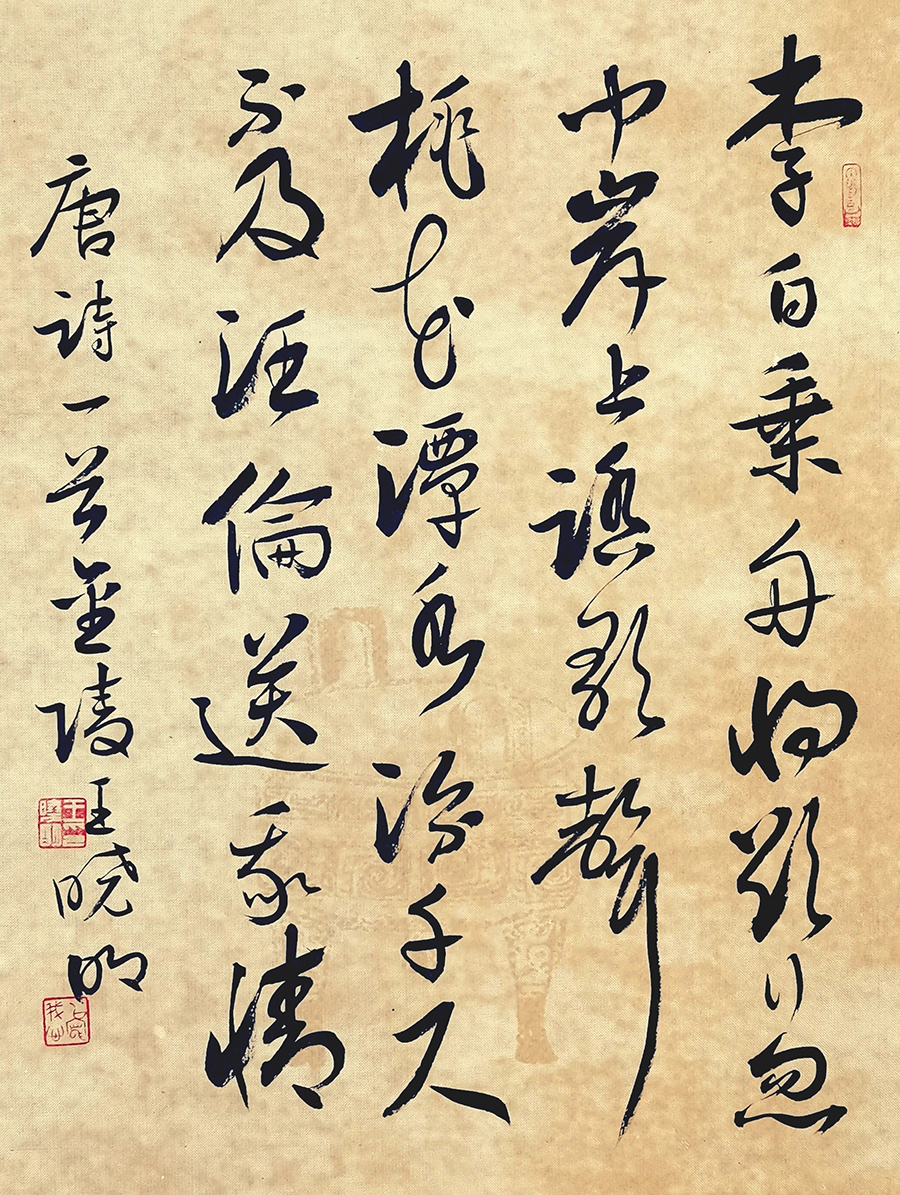 李白乘舟將欲行忽
聞岸上踏歌聲
桃花潭水深千尺
不及汪倫送我情
唐詩一首金陵王晓明